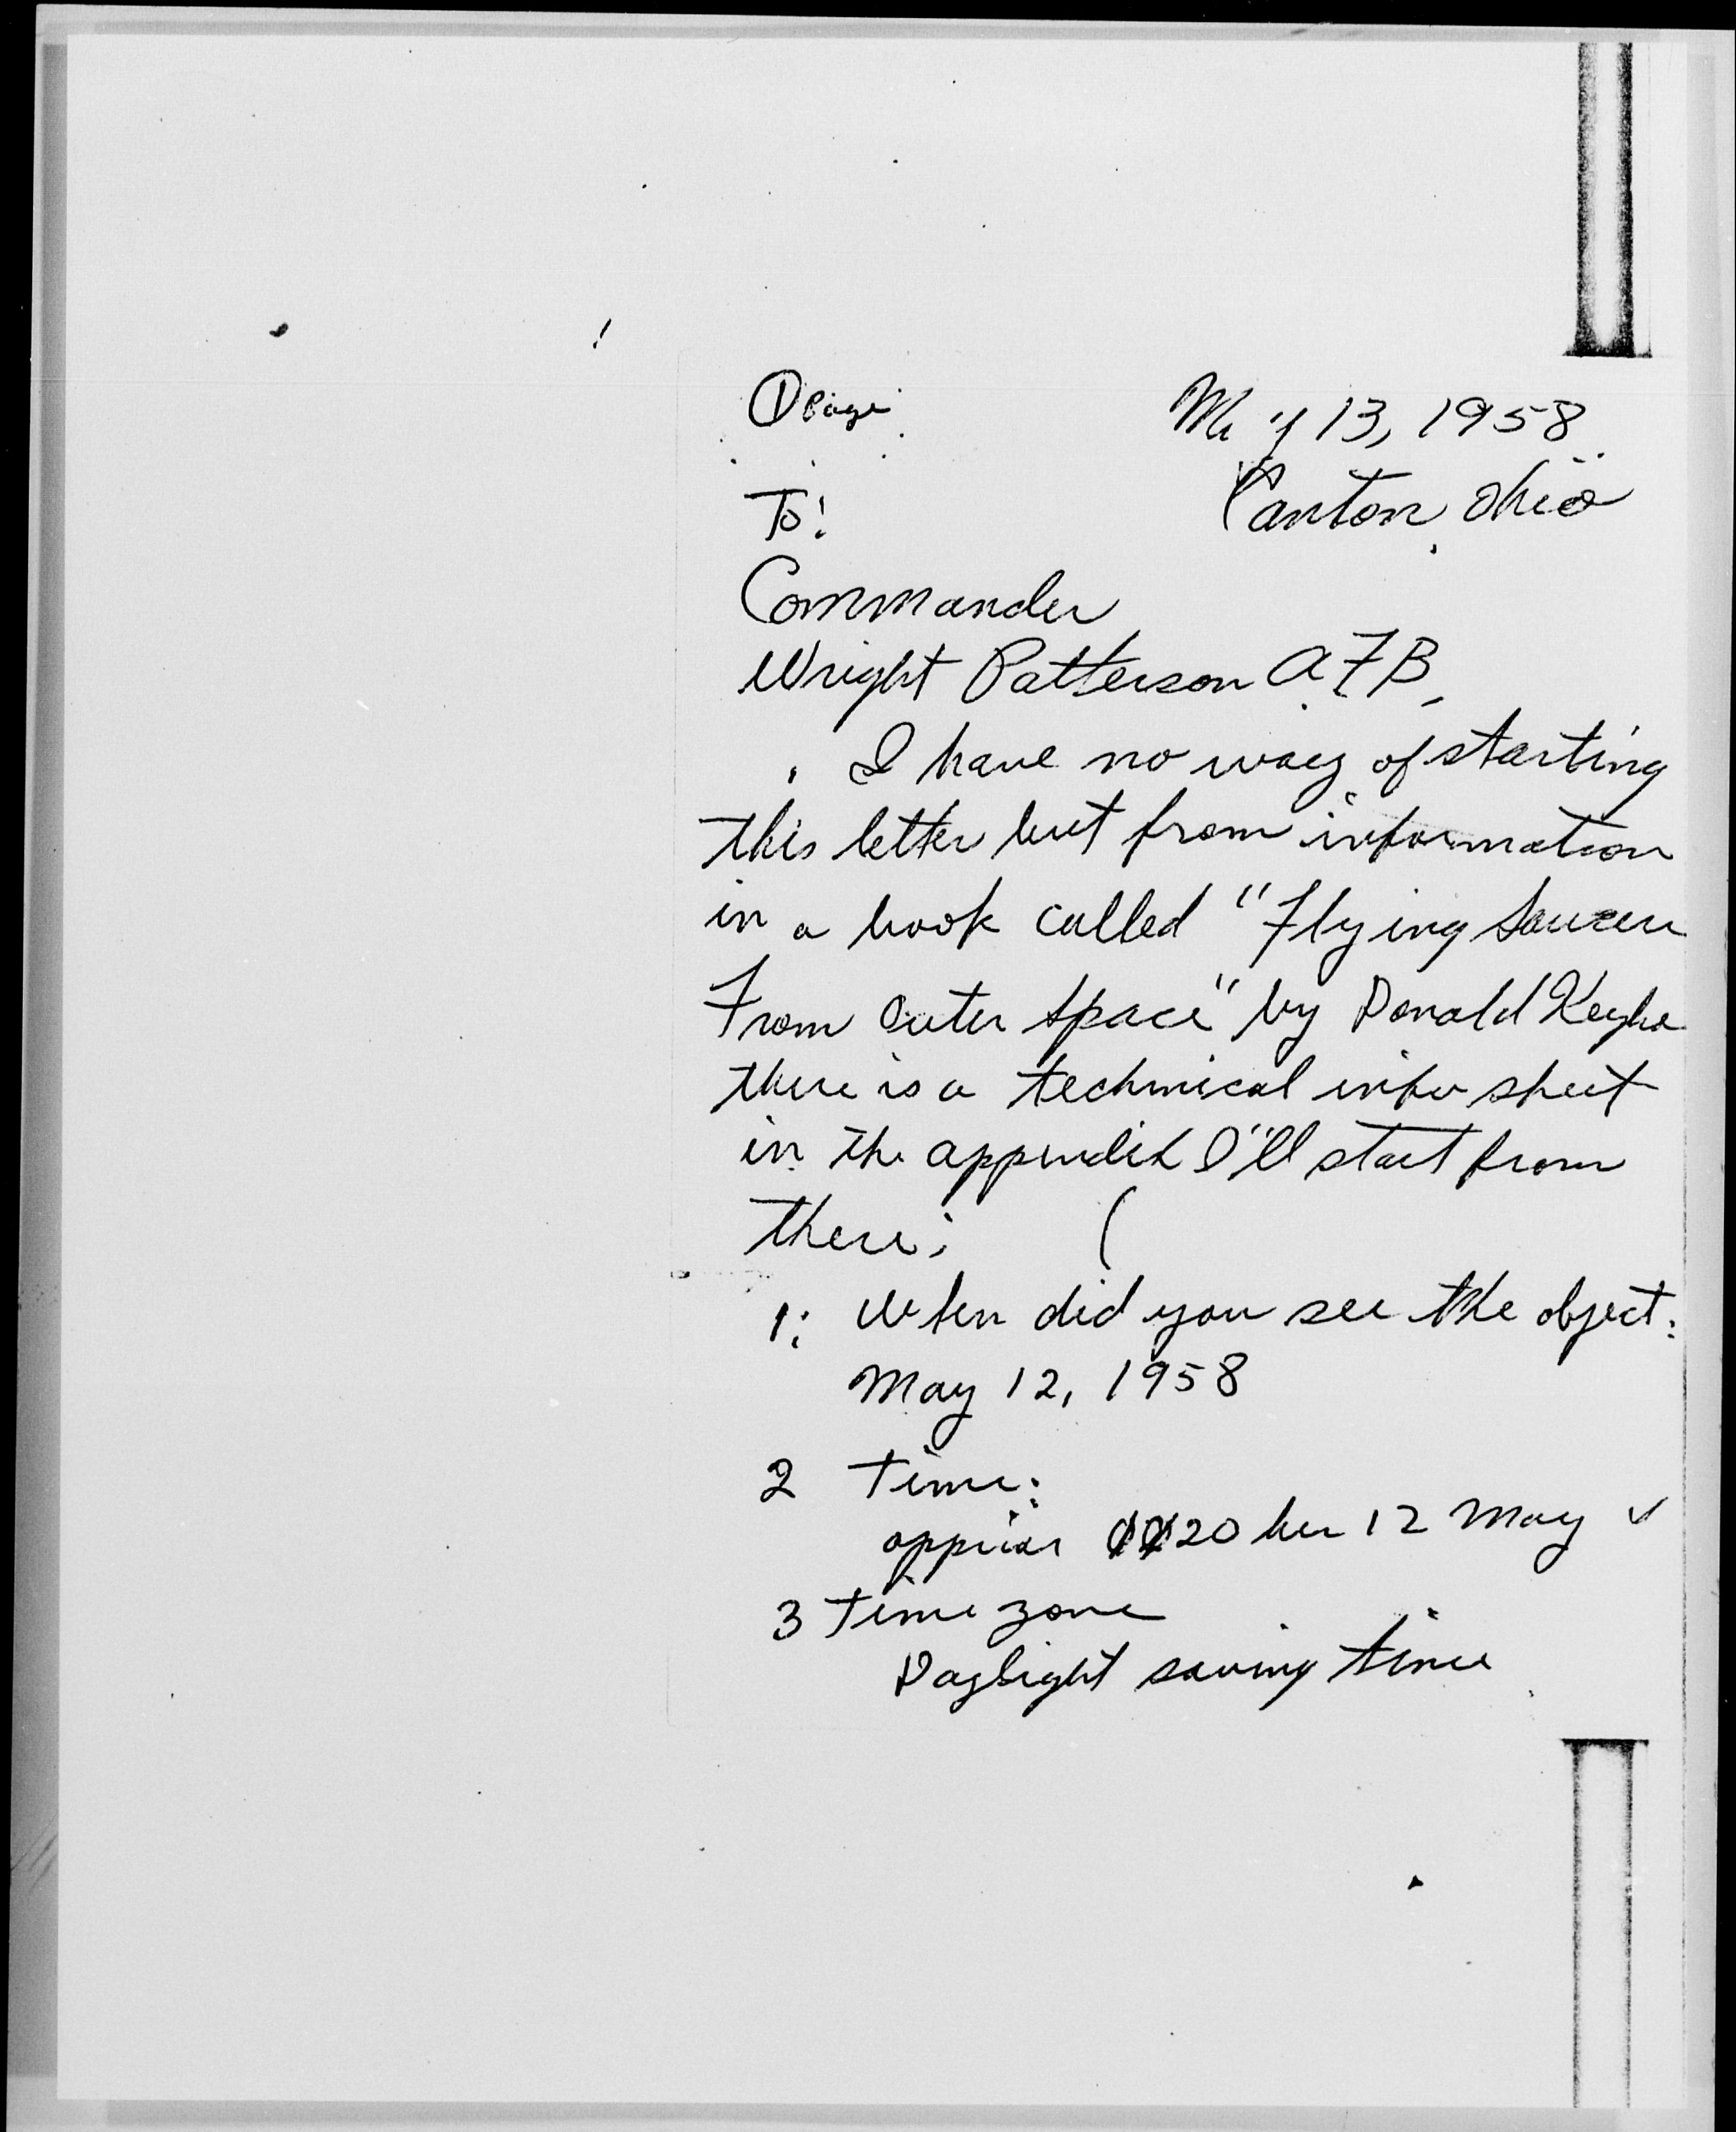 ① page
May 13, 1958
Canton, Ohio
To:
Commander
Wright Patterson AFB,
I have no way of starting
this letter but from information
in a book called "Flying Saucers
From Outer Space" by Donald Keyhoe
there is a technical info sheet
in the appendix I'll start from
there:
1: When did you see the object:
May 12, 1958
2 Time:
approx 20 hr 12 May ✓
3 Time zone
Daylight saving time